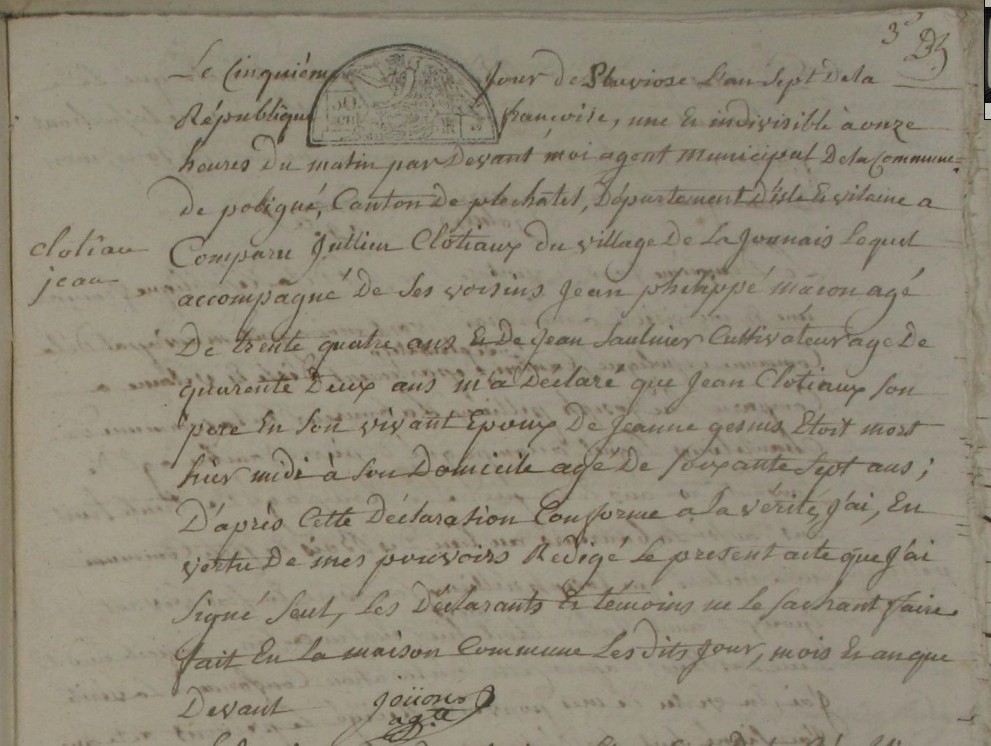 3e
Le Cinquième Jour de Pluviose L'an Sept De la
République françoise, une Et indivisible à onze
heures Du matin par Devant moi agent municipal De la Commune
De poligné, Canton De plechatel, Département d'isle Et vilaine a
clotiau
jean
Comparu Jullien Clotiaux du village De La Jonnais Lequel
accompagné De Ses voisins Jean philippé maçon agé
De trente quatre ans Et De Jean Saulnier Cultivateur age De
quarente Deux ans m'a Déclaré que Jean Clotiaux Son
pere En Son vivant Epoux De Jeanne gesnis Etoit mort
hier midi à Son Domicile agé De Soixante Sept ans;
D'après Cette Déclaration Conforme à La vérité, J'ai, En
vertu De mes pouvoirs Rédigé Le present acte que J'ai
Signé Seul, Les Déclarants Et témoins ne Le Sachant faire
fait En La maison Commune Les dits Jour, mois Et an que
Devant
Joüon
agt